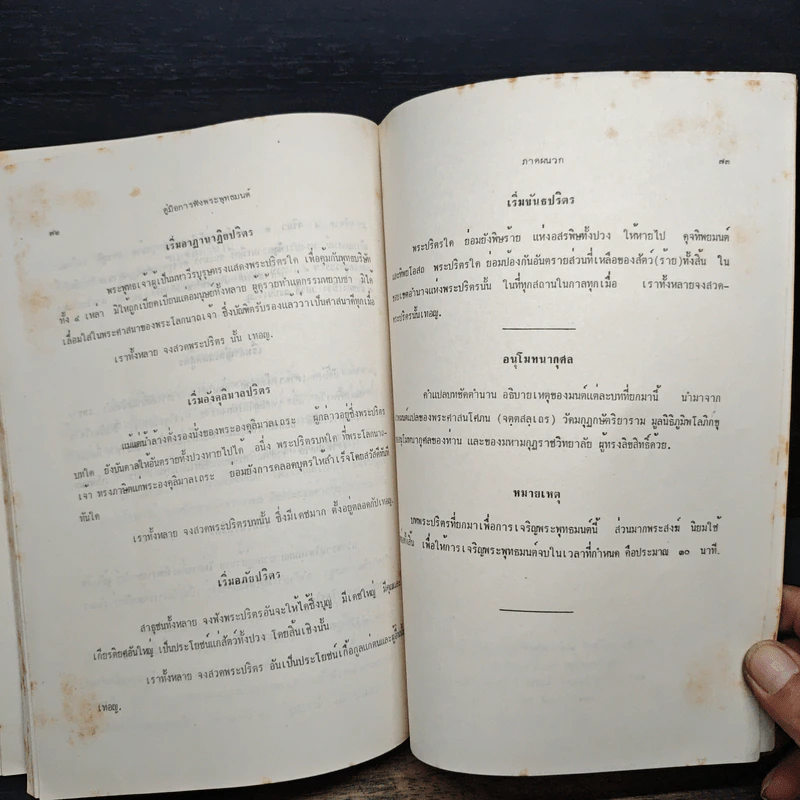 ๗๒
คู่มือการฟังพระพุทธมนต์
เริ่มอาฏานาฏิยปริตร
พระพุทธเจ้าผู้เป็นมหาวีรบุรุษทรงแสดงพระปริตรใด เพื่อคุ้มกันพุทธบริษัท
ทั้ง ๔ เหล่า มิให้ถูกเบียดเบียนแต่อมนุษย์ทั้งหลาย ผู้ดุร้ายทำแต่กรรมหยาบช้า มิได้
เลื่อมใสในพระศาสนาของพระโลกนาถเจ้า ซึ่งบัณฑิตรับรองแล้วว่าเป็นศาสนาดีทุกเมื่อ
เราทั้งหลาย จงสวดพระปริตร นั้น เทอญ.
เริ่มอังคุลิมาลปริตร
แม้แต่น้ำล้างตั่งรองนั่งของพระองคุลิมาลเถระ ผู้กล่าวอยู่ซึ่งพระปริตร
บทใด ยังบันดาลให้อันตรายทั้งปวงหายไปได้ อนึ่ง พระปริตรบทใด ที่พระโลกนาถ
เจ้า ทรงภาษิตแก่พระองคุลิมาลเถระ ย่อมยังการคลอดบุตรให้สำเร็จโดยสวัสดีทันที
ทันใด
เราทั้งหลาย จงสวดพระปริตรบทนั้น ซึ่งมีเดชมาก ตั้งอยู่ตลอดกัปเทอญ.
เริ่มอภัยปริตร
สาธุชนทั้งหลาย จงฟังพระปริตรอันจะให้ได้ซึ่งบุญ มีเดชใหญ่ มีคุณและ
เกียรติยศอันใหญ่ เป็นประโยชน์แก่สัตว์ทั้งปวง โดยสิ้นเชิงนั้น
เราทั้งหลาย จงสวดพระปริตร อันเป็นประโยชน์เกื้อกูลแก่ตนและ
เทอญ.
ภาคผนวก
๗๓
เริ่มขันธปริตร
พระปริตรใด ย่อมยังพิษร้าย แห่งอสรพิษทั้งปวง ให้หายไป ดุจทิพยมนต์
และทิพยโอสถ พระปริตรใด ย่อมป้องกันอันตรายส่วนที่เหลือของสัตว์(ร้าย)ทั้งสิ้น ใน
เขตอำนาจแห่งพระปริตรนั้น ในที่ทุกสถานในกาลทุกเมื่อ เราทั้งหลายจงสวด-
พระปริตรนั้นเทอญ.
อนุโมทนากุศล
คำแปลบทขัดตำนาน อธิบายเหตุของมนต์แต่ละบทที่ยกมานี้ นำมาจาก
มนต์แปลของพระศาสนโศภน (จตฺตสลฺเถร) วัดมกุฏกษัตริยาราม มูลนิธิภูมิพโลภิกขุ
อนุโมทนากุศลของท่าน และของมหามกุฏราชวิทยาลัย ผู้ทรงลิขสิทธิ์ด้วย.
หมายเหตุ
บทพระปริตรที่ยกมาเพื่อการเจริญพระพุทธมนต์นี้ ส่วนมากพระสงฆ์ นิยมใช้
เพื่อให้การเจริญพระพุทธมนต์จบในเวลาที่กำหนด คือประมาณ ๓๐ นาที.